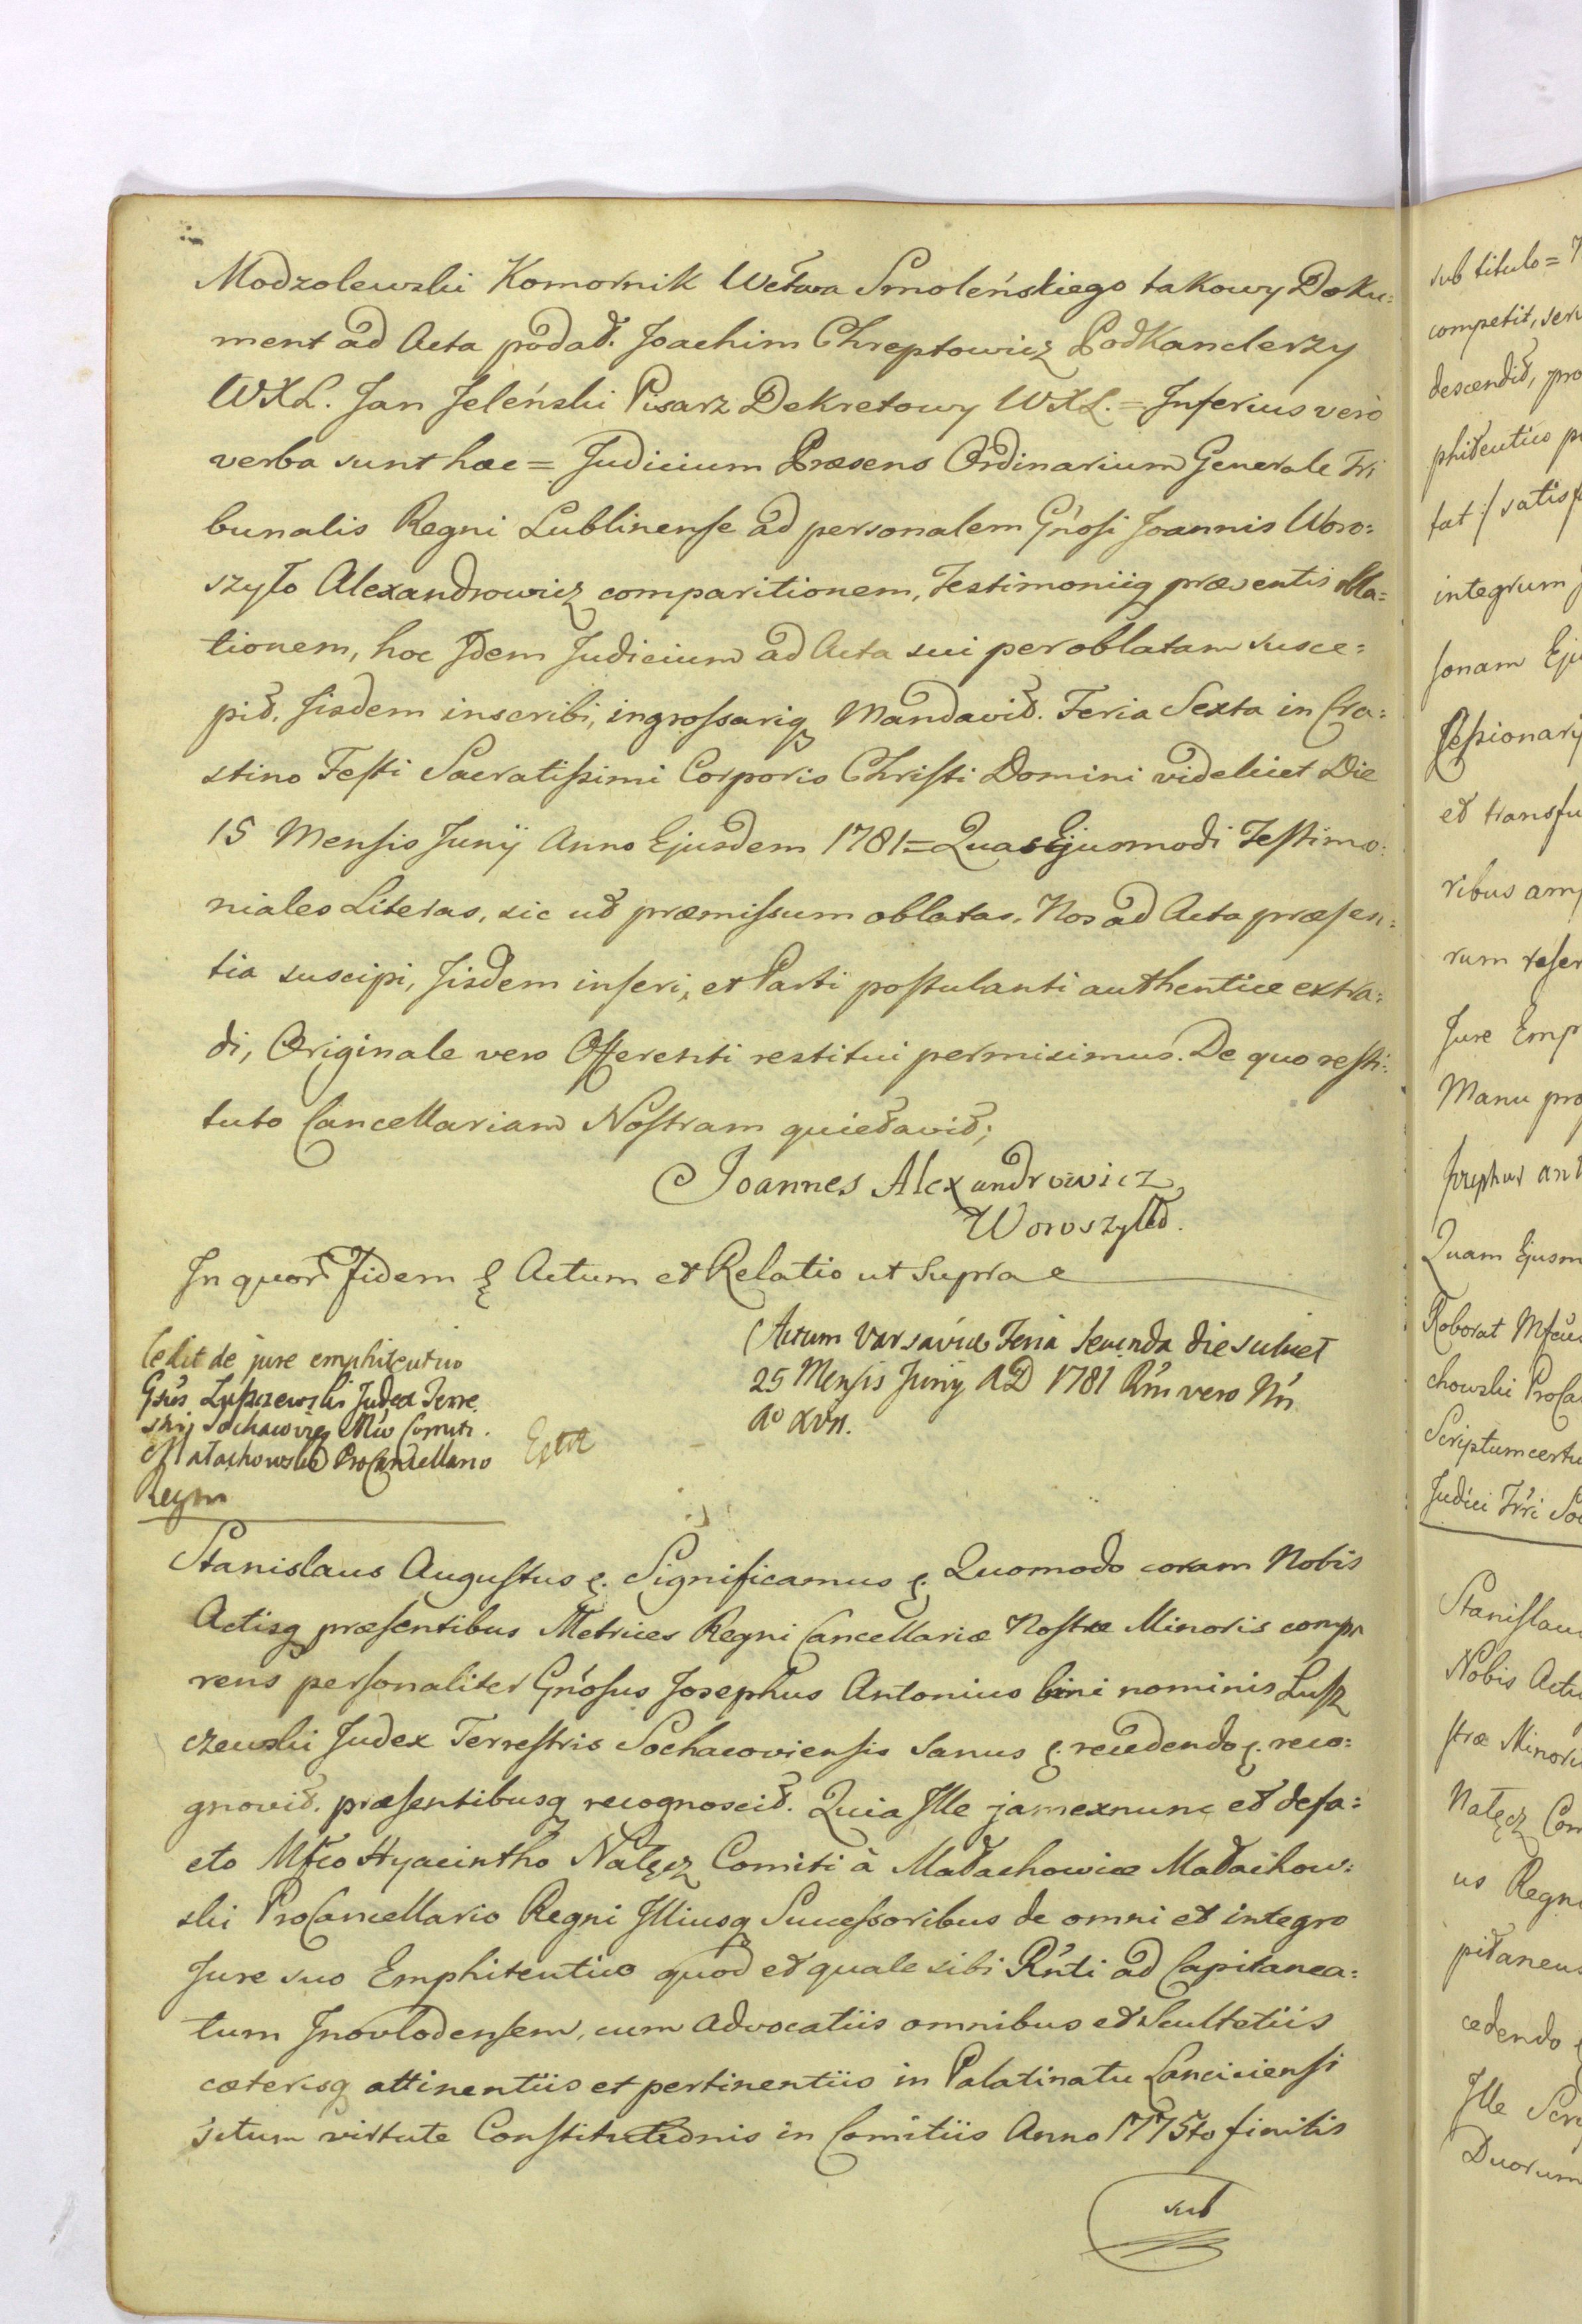 Modzolewski Komornik Wctwa Smoleńskiego takowy Doku=
ment ad Acta podał. Joachim Chreptowicz PodKanclerzy
WXL. Jan Jeleński Pisarz Dekretowy WXL. = Inferius verò
verba sunt hæc = Judicium Præsens Ordinarium Generale Tri
bunalis Regni Lublinense ad personalem Gńosi Joannis Woro=
szyło Alexandrowicz comparitionem, Testimoniiq præsentis obla=
tionem, hoc Idem Judicium ad Acta sui per oblatam susce=
pit. Iisdem inscribi, ingrossariq Mandavit. Feria Sexta in Cra=
stino Festi Sacratissimi Corporis Christi Domini videlicet Die
15 Mensis Junij Anno Ejusdem 1781 = Quas Ejusmodi Testimo=
niales Literas, sic ut præmissum oblatas, Nos ad Acta præsen=
tia suscipi, Iisdem inseri, et Parti postulanti authentice extra=
di, Originale vero Offerenti restitui permisimus. De quo resti=
tuto Cancellariam Nostram quietavit;
Joannes Alexandrowicz
Woroszyłło.
In quor Fidem &. Actum et Relatio ut Supra
Cedit de jure emphiteutico
Gsus Luszczewski Judex Terre
stris Sochacovien Mfco Comiti
Małachowski ProCancellario
Regni
Extt
Actum Varsaviæ Feria Secunda die scilicet
25 Mensis Junij AD 1781 Rńi vero Nri
Ao XVII.
Stanislaus Augustus &. Significamus &. Quomodo coram Nobis
Actisq præsentibus Metrices Regni Cancellariæ Nostræ Minoris compa
rens personaliter Gńosus Josephus Antonius bini nominis Lusz
czewski Judex Terrestris Sochacoviensis Sanus &. recedendo &. reco=
gnovit. præsentibusq recognoscit. Quia Ille jam exnunc et defa=
cto Mfco Hyacintho Nałęcz Comiti à Małachowice Małachow=
ski ProCancellario Regni Illiusq Successoribus de omni et integro
Jure suo Emphiteutico quod et quale sibi Rńti ad Capitanea=
tum Inovlodensem, cum Advocatiis omnibus et Scultetiis
cæterisq attinentiis et pertinentiis in Palatinatu Lanciciensi
situm virtute Constitutionis in Comitiis Anno 1775to finitis
sub
sub titulo =
competit,
descendit, pro
phiteutico
tat
integrum
sonam
Cessionarij
et transfu
ribus
rum
Jure Emp
Manu pro
Josephus ant
Quam Ejusm
Roborat Mfcus
chowski ProCa
Scriptum
Judici Trri So
Stanislaus
Nobis Actis
stræ Minoris
Nałęcz Com
us Regni
pitaneus
cedendo
Ille
Duorum